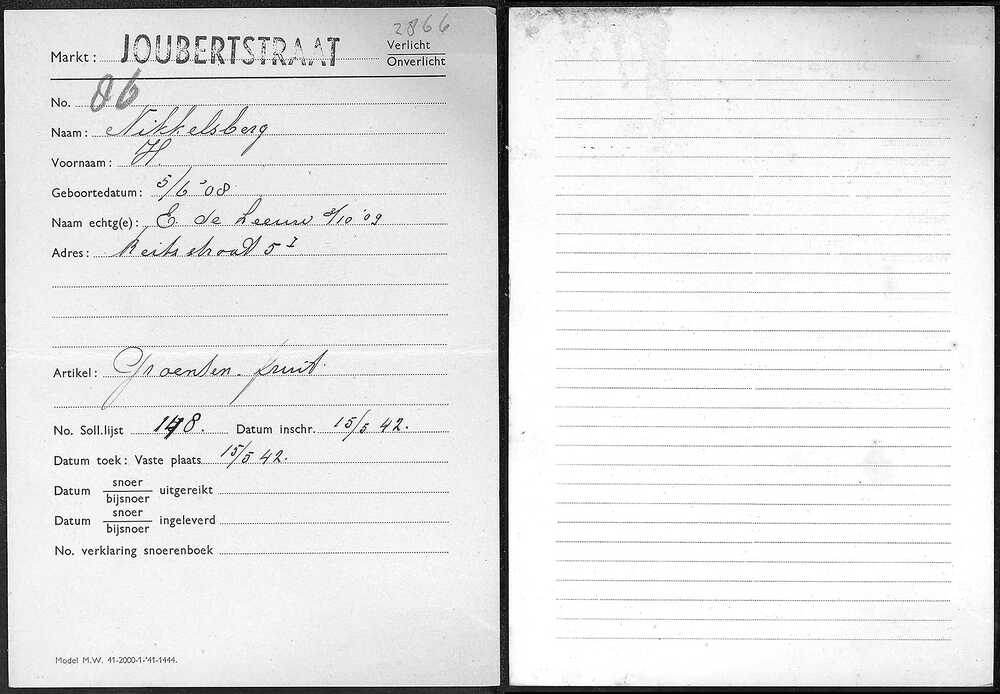 2866
Markt: JOUBERTSTRAAT
Verlicht
Onverlicht
No. 86
Naam: Nikkelsberg
Voornaam: H.
Geboortedatum: 5/6 '08
Naam echtg(e): E. de Leeuw 2/10 '09
Adres: Reitzstraat 5 I
Artikel: Groenten. fruit.
No. Soll.lijst 148. Datum inschr. 15/5 42.
Datum toek: Vaste plaats 15/5 42.
Datum snoer/bijsnoer uitgereikt
Datum snoer/bijsnoer ingeleverd
No. verklaring snoerenboek
Model M.W. 41-2000-1-'41-1444.